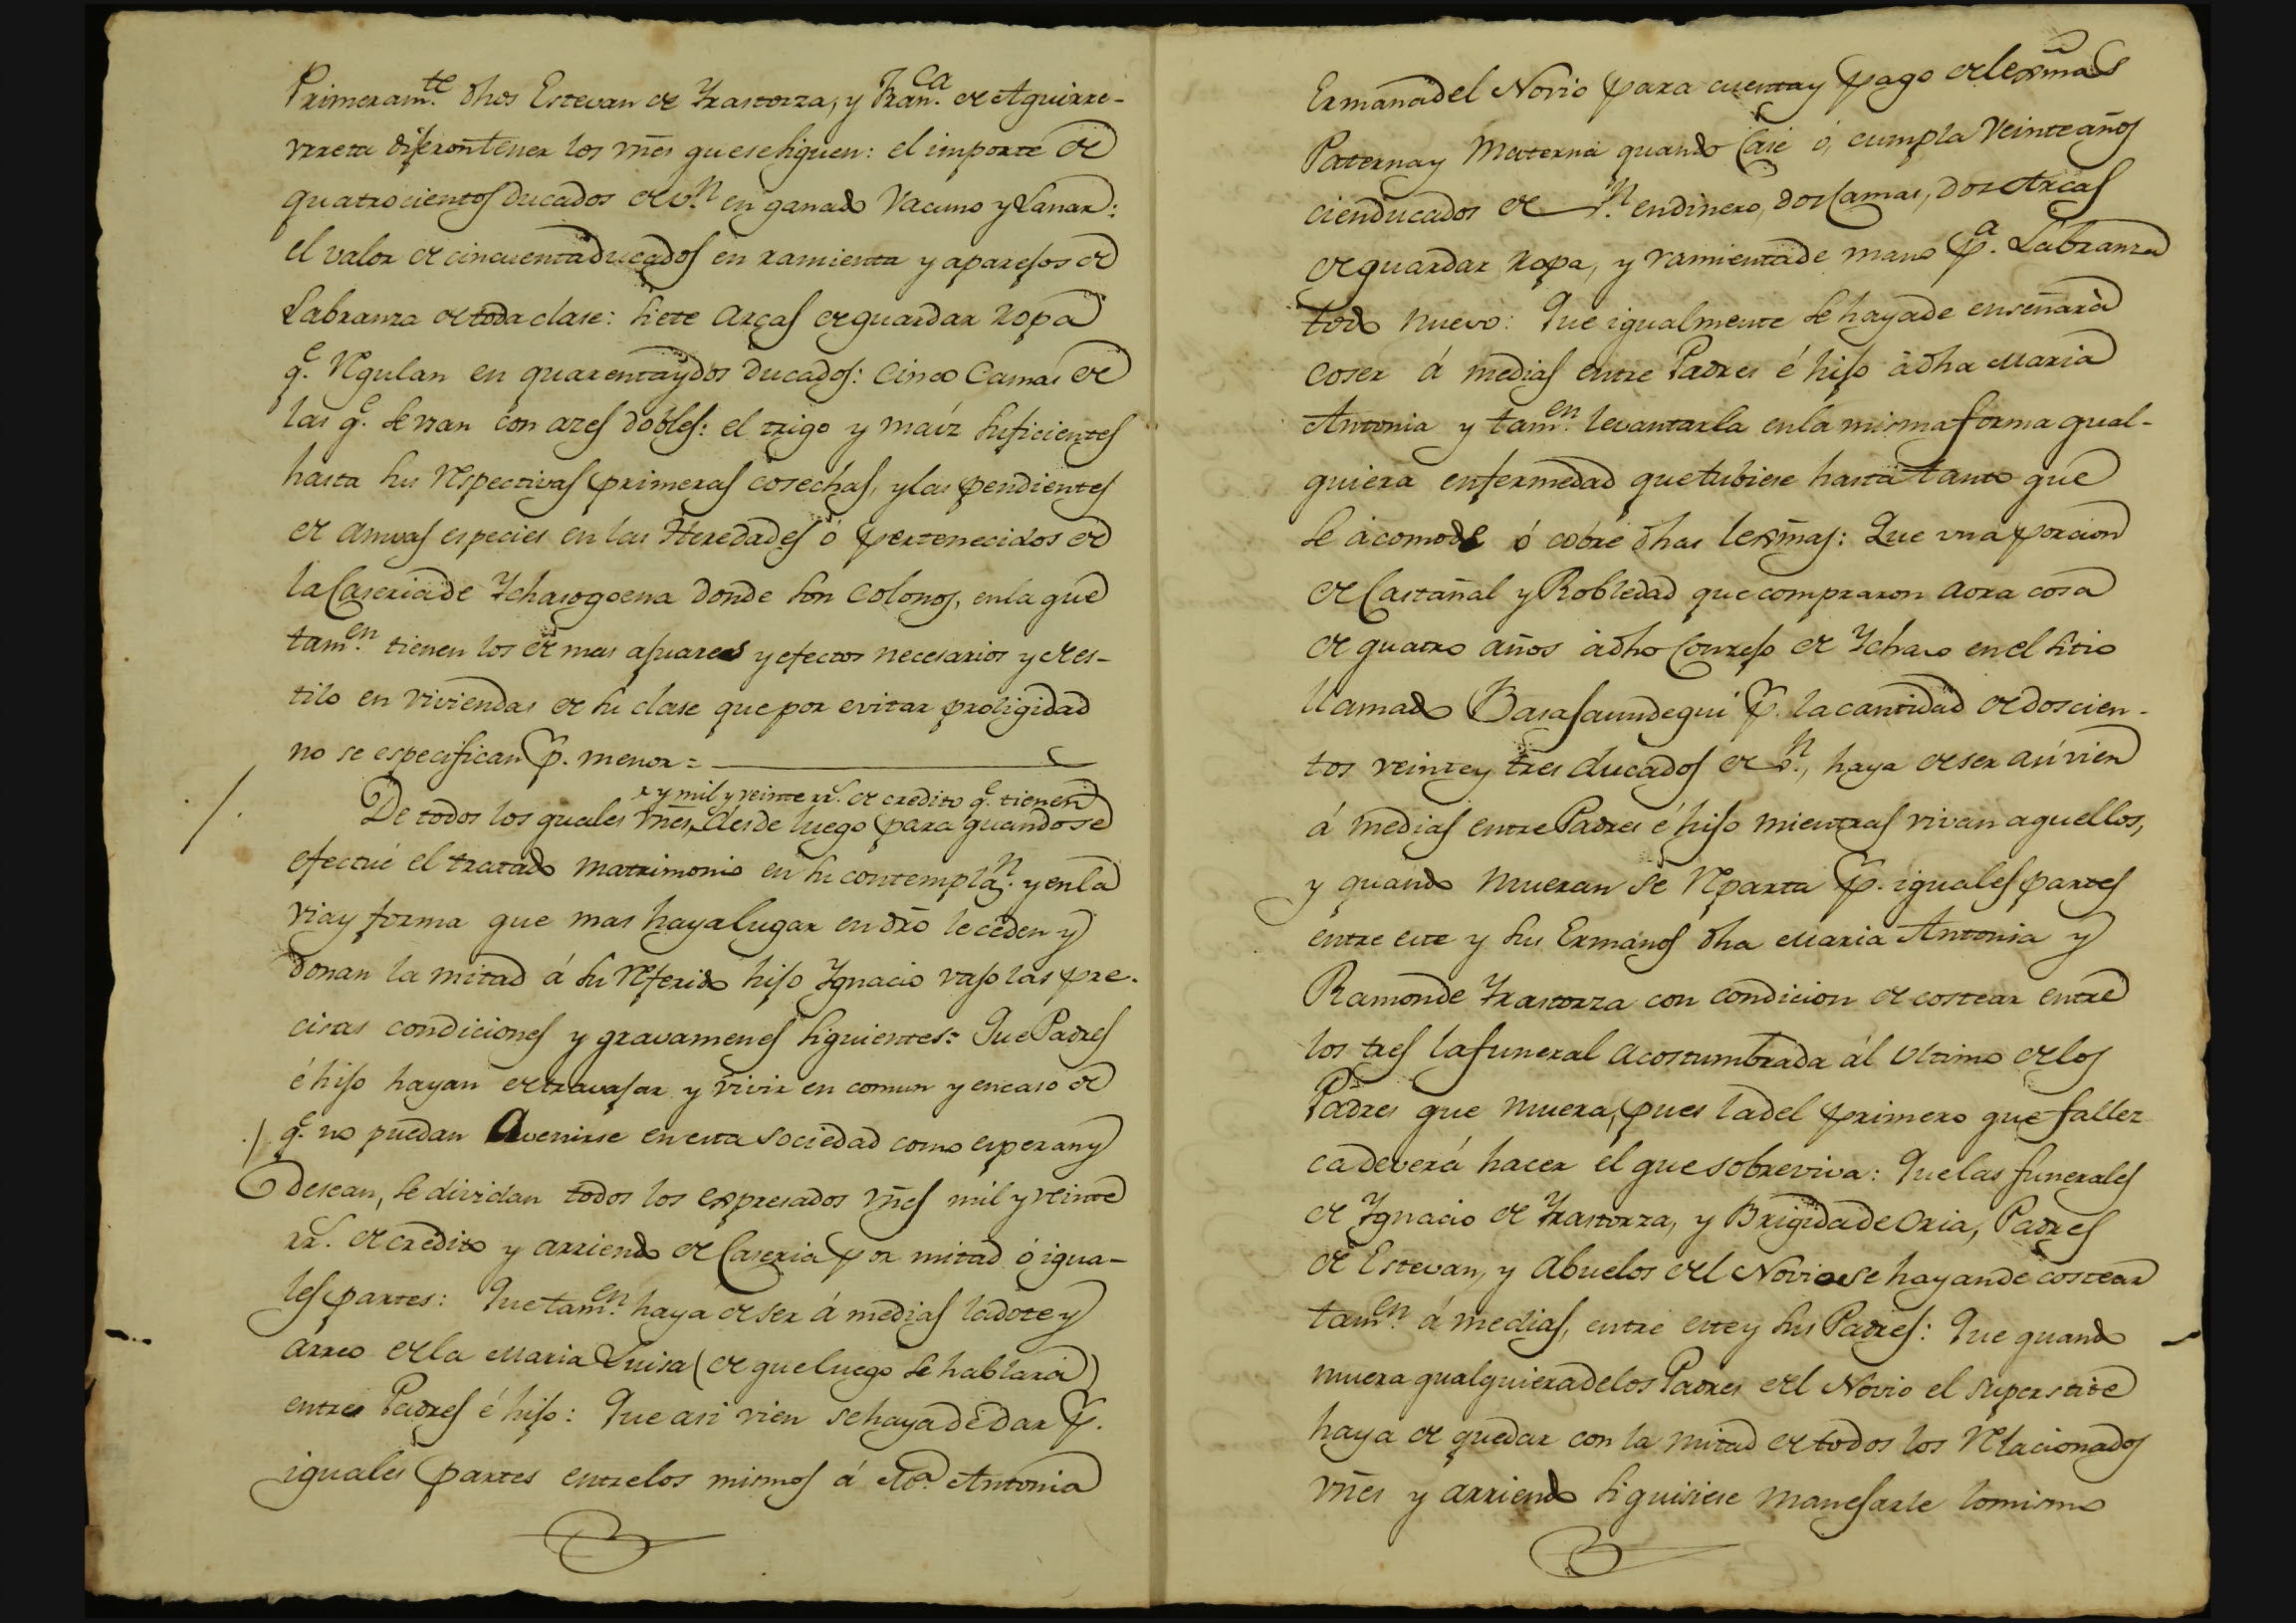 Primeram.te dhos Estevan de Yrastorza, y Fran.ca de Aguirre-
rreta diseron tener los vñes que se siguen: el importe de
quatrocientos ducados de v.n en ganado Vacuno y Lanar:
el valor de cincuenta ducados en ramienta y aparejos de
Labranza de toda clase: siete Arcas de guardar Ropa
q.e Regulan en quarenta y dos ducados: cinco Camas de
las q.e se vsan con azes dobles: el trigo y maiz suficientes
hasta sus Respectivas primeras cosechas, y las pendientes
de amvas especies en las Heredades ó pertenecidos de
la Caseria de Ychasogoena donde son colonos, en la que
tam.en tienen los demas ajuares y efectos necesarios y de es-
tilo en viviendas de su clase que por evitar proligidad
no se especifican p. menor =
x y mil y veinte rr.s de credito q.e tienen
De todos los quales vñes, desde luego para quando se
efectué el tratado matrimonio en su contemplaz.n y en la
via y forma que mas haya lugar en dr̃o le ceden y
donan la mitad á su Referido hijo Ygnacio vajo las pre-
cisas condiciones y gravamenes siguientes: Que Padres
é hijo hayan de travajar y vivir en comun y en caso de
q.e no puedan Avenirse en esta sociedad como esperan y
desean, se dividan todos los expresados vñes mil y veinte
rr.s de credito y arriendo de Caseria por mitad ó igua-
les partes: Que tam.en haya de ser á medias la dote y
arreo de la Maria Luisa (de que luego se hablara)
entre Padres é hijo: Que asi vien se haya de dar p.
iguales partes entre los mismos á M.a Antonia
Ermana del Novio para cuenta y pago de lexmas
Paterna y Materna quando Case ó, cumpla veinte años
cien ducados de v.n en dinero, dos Camas, dos Arcas
de guardar Ropa, y ramienta de mano p.a Labranza
todo nuevo: Que igualmente se haya de enseñar à
coser á medias entre Padres é hijo à dha Maria
Antonia y tam.en levantarla en la misma forma qual-
quiera enfermedad que tubiese hasta tanto que
se acomode ó cobre dhas lexm̃as: Que vna porcion
de Castañal y Robledad que compraron aora cosa
de quatro años à dho Conzejo de Ychaso en el sitio
llamado Basajaundegui p. la cantidad de doscien-
tos veinte y tres ducados de v.n, haya de ser asi vien
á medias entre Padres é hijo mientras vivan aquellos,
y quando mueran se Reparta p. iguales partes
entre este y sus Ermanos dha Maria Antonia y
Ramon de Yrastorza con condicion de costear entre
los tres la funeral acostumbrada ál vltimo de los
Padres que muera, pues la del primero que fallez
ca deverá hacer el que sobreviva: Que las funerales
de Ygnacio de Yrastorza, y Brigida de Oria, Padres
de Estevan, y Abuelos del Novio se hayan de costear
tam.en á medias, entre este y sus Padres: Que quando
muera qualquiera de los Padres del Novio el superstite
haya de quedar con la mitad de todos los Relacionados
vñes y arriendo si quisiese manejarle lo mismo